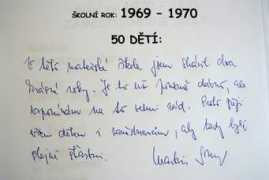 ŠKOLNÍ ROK: 1969 - 1970
50 DĚTÍ:
V této mateřské škole jsem strávil dva
krásné roky. Je to už poměrně dávno, ale
vzpomínám na to velmi rád. Proto přeji
všem dětem i zaměstnancům, aby tady byli
stejně šťastni.
Martin